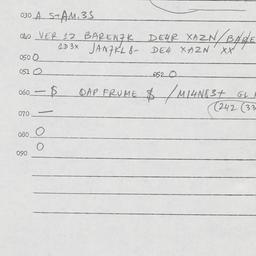 030 A. S-AM.3S
040 VER 12 BARENZK DE4R XAZN/
1D3X JANZKL8- DE4 XAZN XX
050 O
051 O 052 O
060 — $ QAP FRUME $ /M14N83+ GL
(242 (33
070 —
080 O
O
090